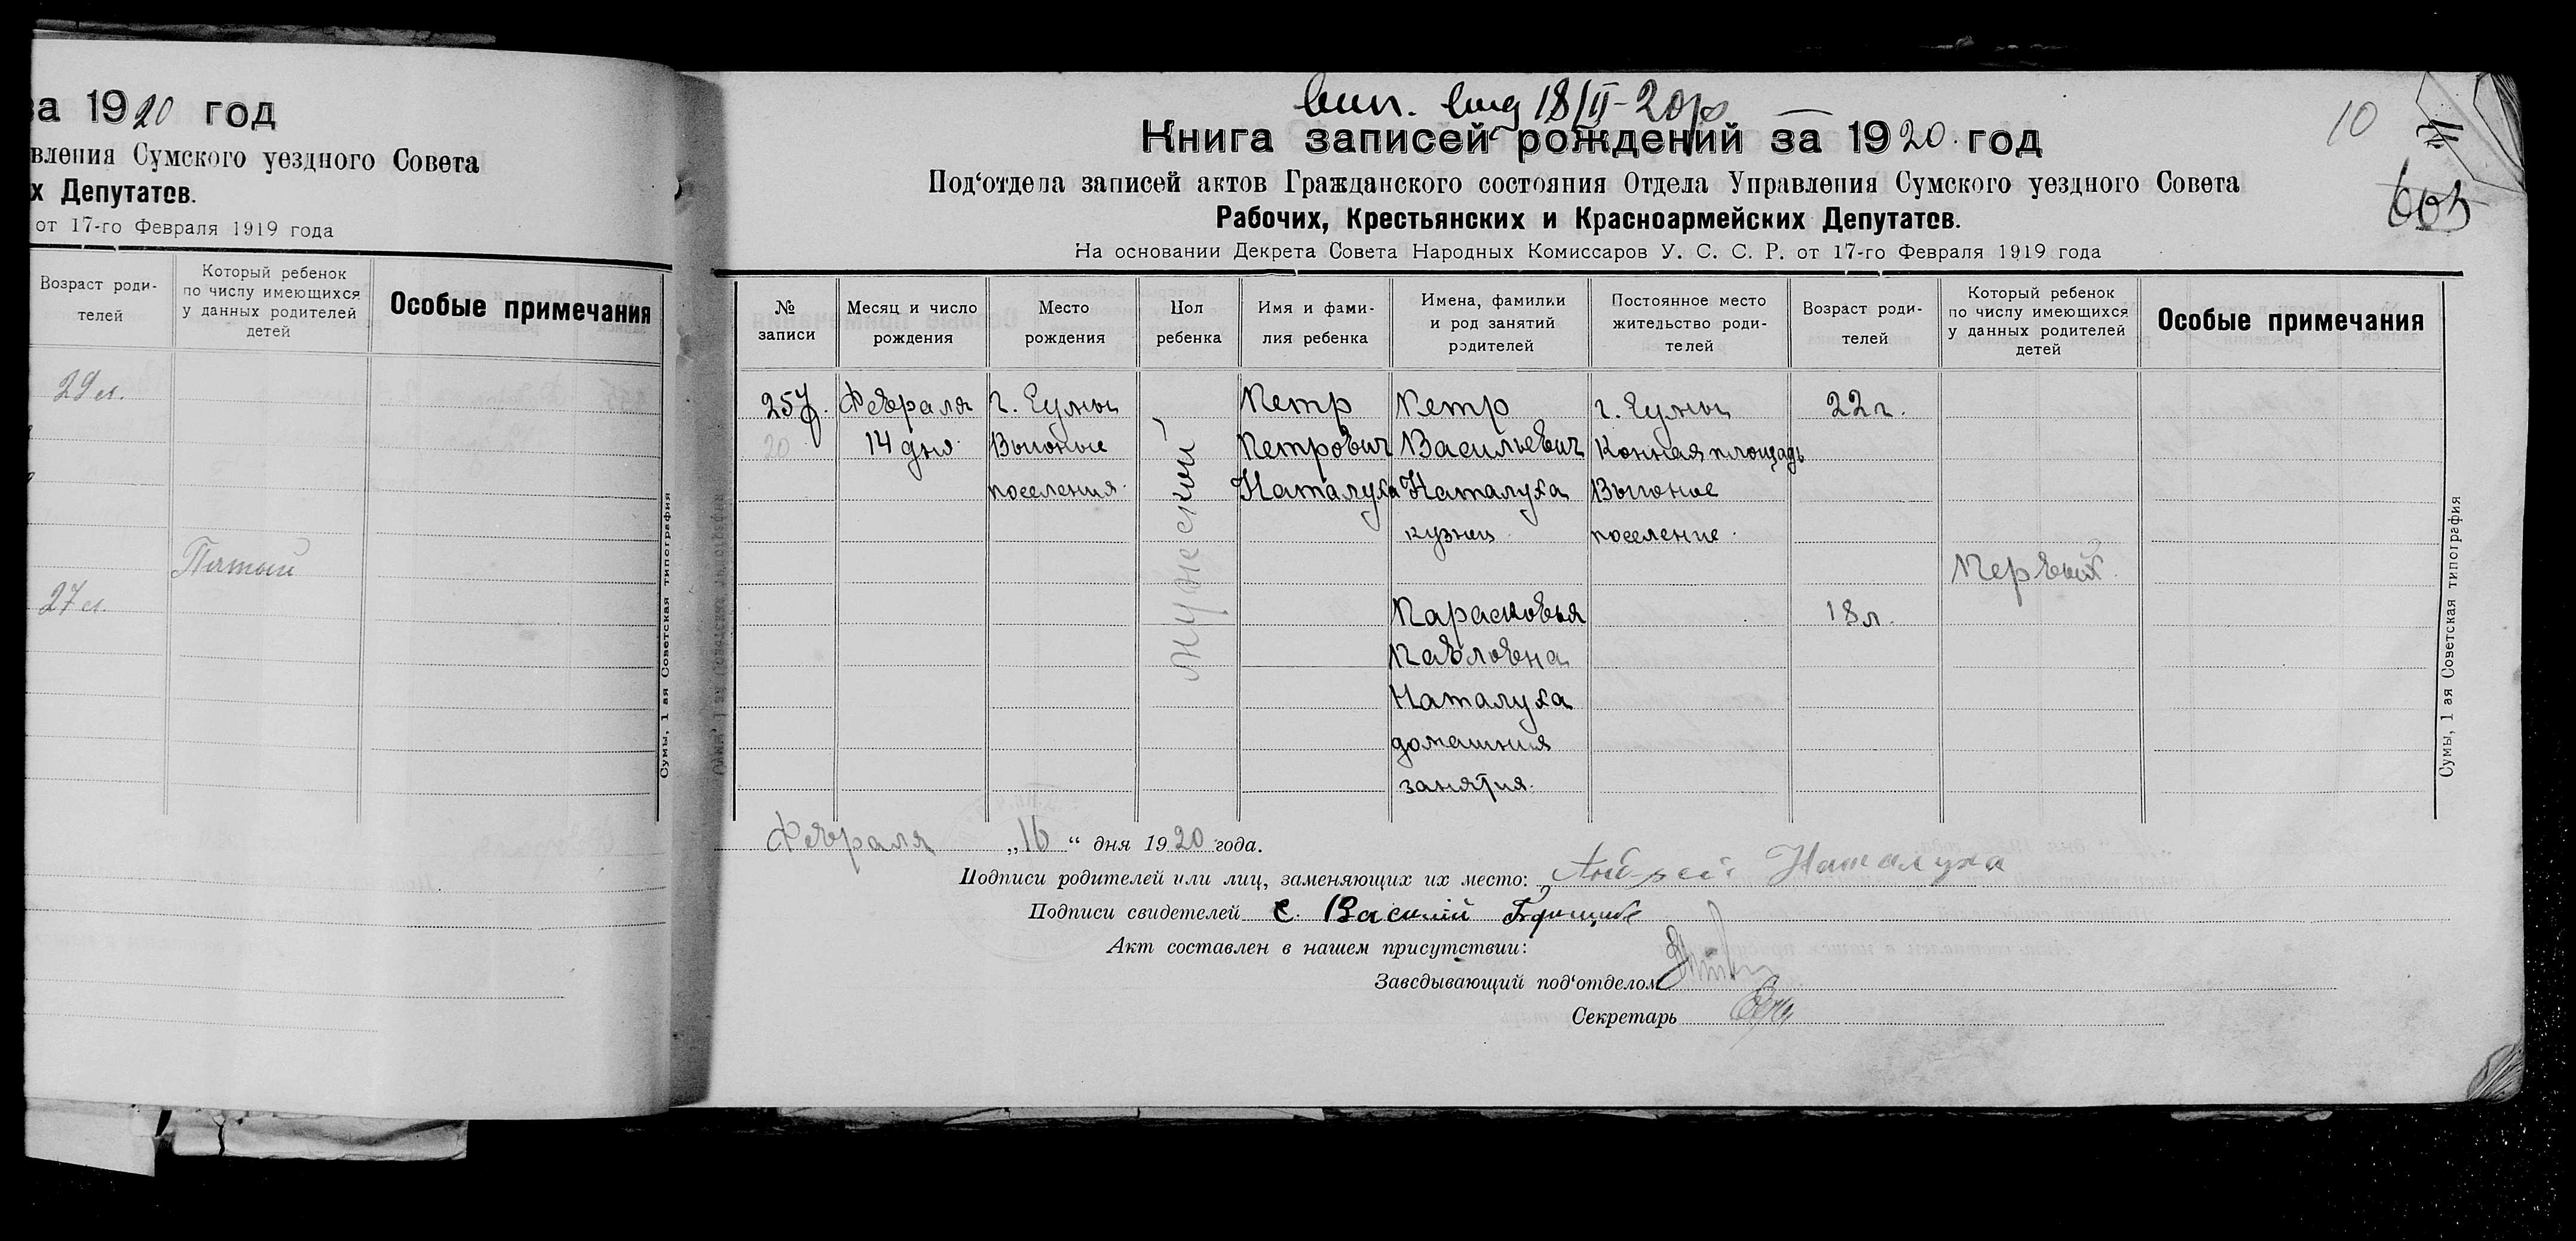 за 1920 год
вления Сумского уездного Совета
х Депутатов.
от 17-го Февраля 1919 года
Возраст роди-
телей
Который ребенок
по числу имеющихся
у данных родителей
детей
Особые примечания
29 л.
Пятый
27 л.
Сумы, 1 ая Советская типография
18/II-20
10
Книга записей рождений за 1920 год
Под‘отдела записей актов Гражданского состояния Отдела Управления Сумского уездного Совета
Рабочих, Крестьянских и Красноармейских Депутатов.
На основании Декрета Совета Народных Комиссаров У. С. С. Р. от 17-го Февраля 1919 года
№
записи
Месяц и число
рождения
Место
рождения
Пол
ребенка
Имя и фами-
лия ребенка
Имена, фамилии
и род занятий
родителей
Постоянное место
жительство роди-
телей
Возраст роди-
телей
Который ребенок
по числу имеющихся
у данных родителей
детей
Особые примечания
257.
20
Февраля
14 дня
г. Сумы
Выгоное
поселения
мужеской
Петр
Петрович
Наталуха
Петр
Васильевич
Наталуха
кузнец
Парасковья
Павловна
Наталуха
домашния
занятия.
г. Сумы
Конная площадь
Выгоное
поселение
22 г.
18 л.
Первый
Сумы, 1 ая Советская типография
Февраля „16“ дня 1920 года.
Подписи родителей или лиц, заменяющих их место: Наталуха
Подписи свидетелей Василий
Акт составлен в нашем присутствии:
Заведывающий под‘отделом
Секретарь